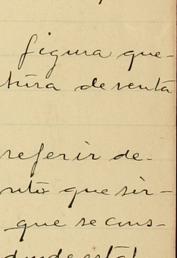 figura que-
tura de venta
referir de-
nto que sir-
que se cons-